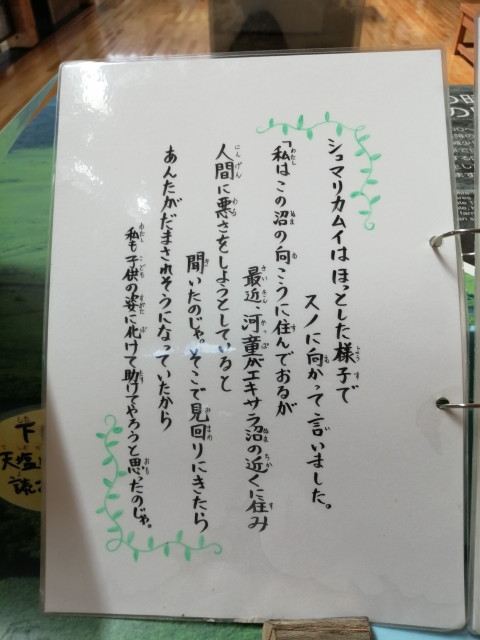 シュマリカムイはほっとした様子で
スノに向かって言いました。
「私はこの沼の向こうに住んでおるが
最近、河童がエキサラ沼の近くに住み
人間に悪さをしようとしていると
聞いたのじゃ。そこで見回りにきたら
あんたがだまされそうになっていたから
私も子供の姿に化けて助けてやろうと思ったのじゃ。
下
天塩